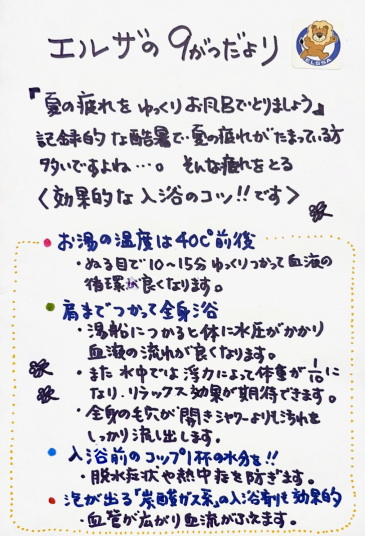 エルザの9がつだより
ELBSA
『夏の疲れをゆっくりお風呂でとりましょう』
記録的な酷暑で、夏の疲れがたまっている方
多いですよね…。そんな疲れをとる
〈効果的な入浴のコツ!!です〉
・お湯の温度は40℃前後
・ぬる目で10〜15分ゆっくりつかって血液の
循環が良くなります。
・肩までつかって全身浴
・湯船につかると体に水圧がかかり
血液の流れが良くなります。
・また水中では浮力によって体重が1/10に
なり、リラックス効果が期待できます。
・全身の毛穴が開きシャワーよりも汚れを
しっかり流し出します。
・入浴前のコップ1杯の水分を!!
・脱水症状や熱中症を防ぎます。
・泡が出る「炭酸ガス系」の入浴剤も効果的
・血管が広がり血流がふえます。